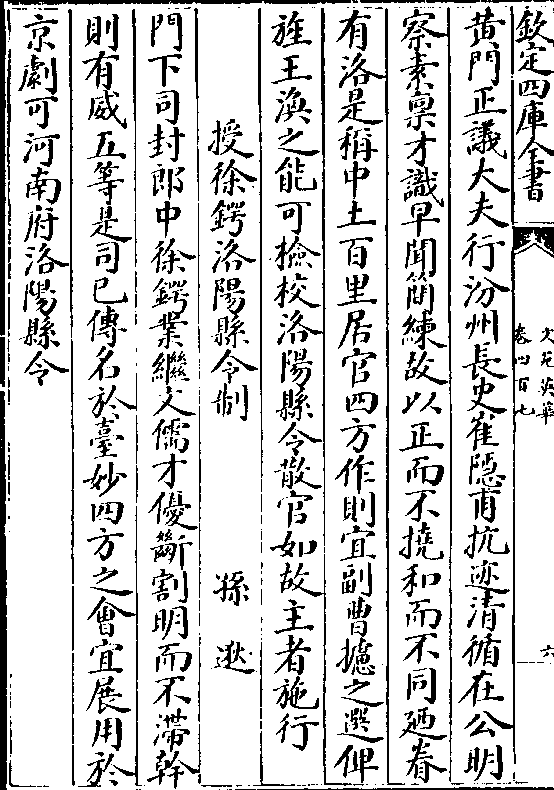 欽定四庫全書
文苑英華
卷四百七
六
黄門正議大夫行汾州長史崔隠甫抗迹清循在公明
察素禀才識早聞簡練故以正而不撓和而不同廼眷
有洛是稱中土百里居官四方作則宜副曹攄之選俾
旌王渙之能可檢校洛陽縣令散官如故主者施行
授徐鍔洛陽縣令制　孫逖
門下司封郎中徐鍔業繼文儒才優斷割明而不滯幹
則有威五等是司已傳名於臺妙四方之會宜展用於
京劇可河南府洛陽縣令